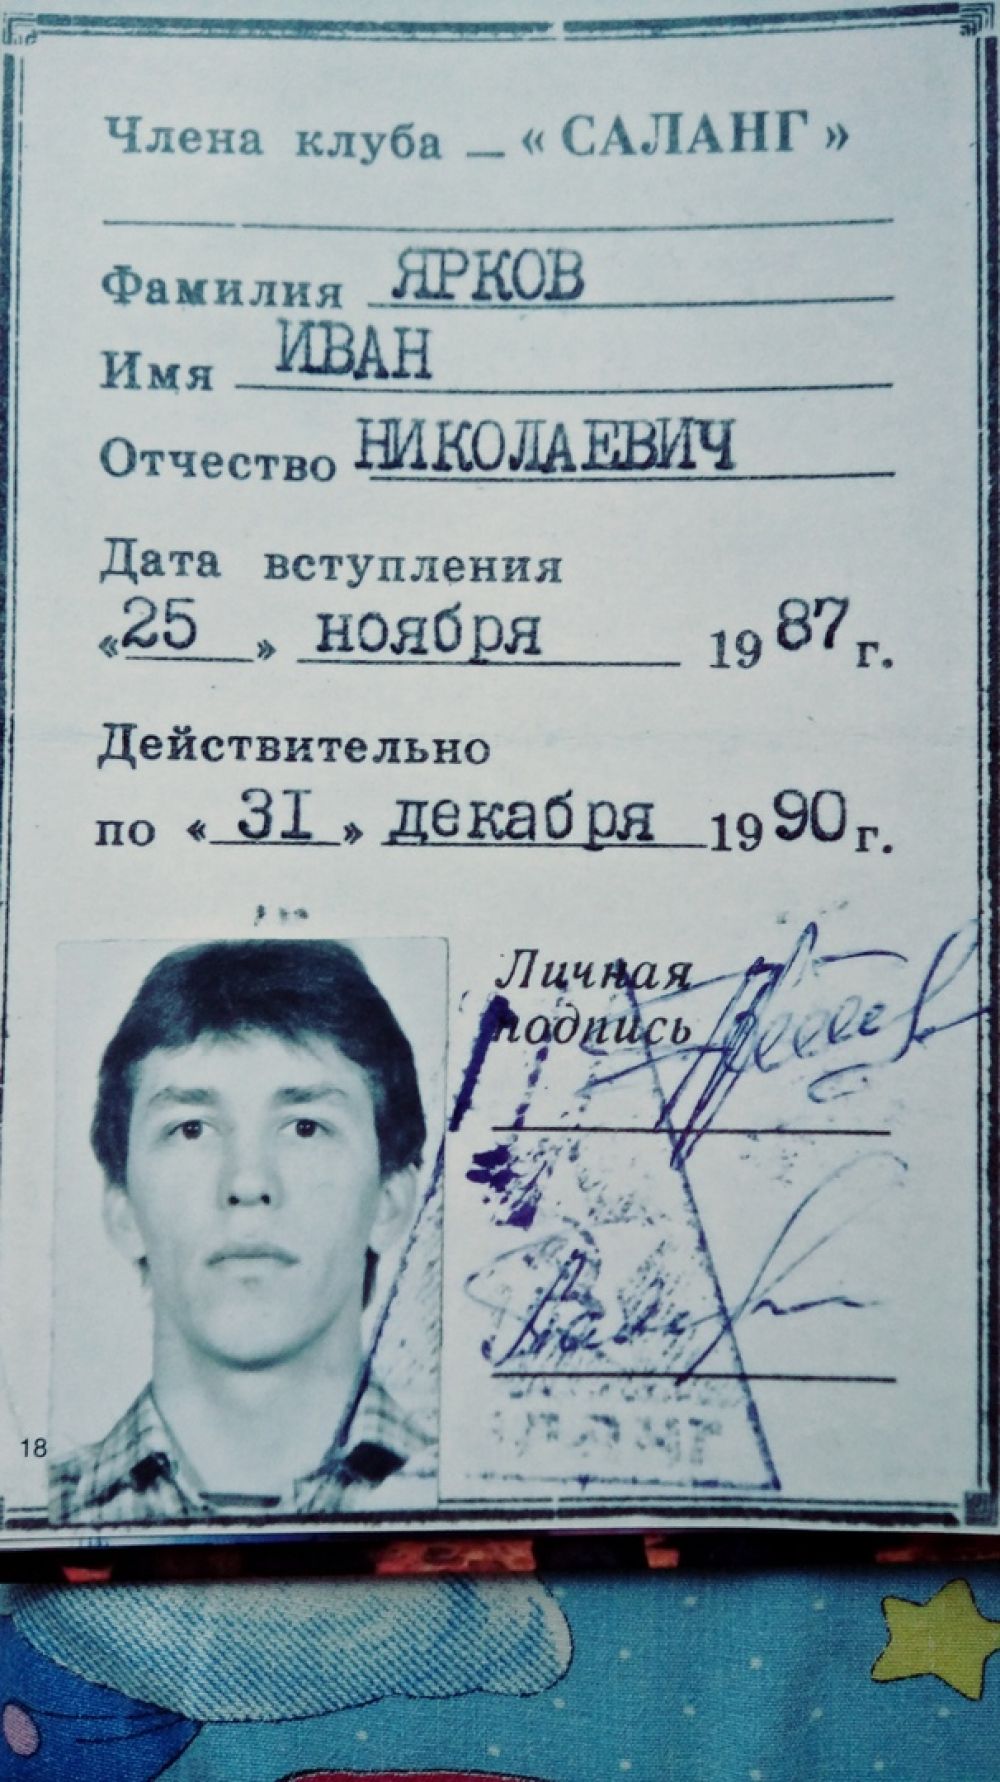 Члена клуба — «САЛАНГ»
Фамилия ЯРКОВ
Имя ИВАН
Отчество НИКОЛАЕВИЧ
Дата вступления
«25» ноября 1987 г.
Действительно
по «31» декабря 1990 г.
Личная
подпись
18